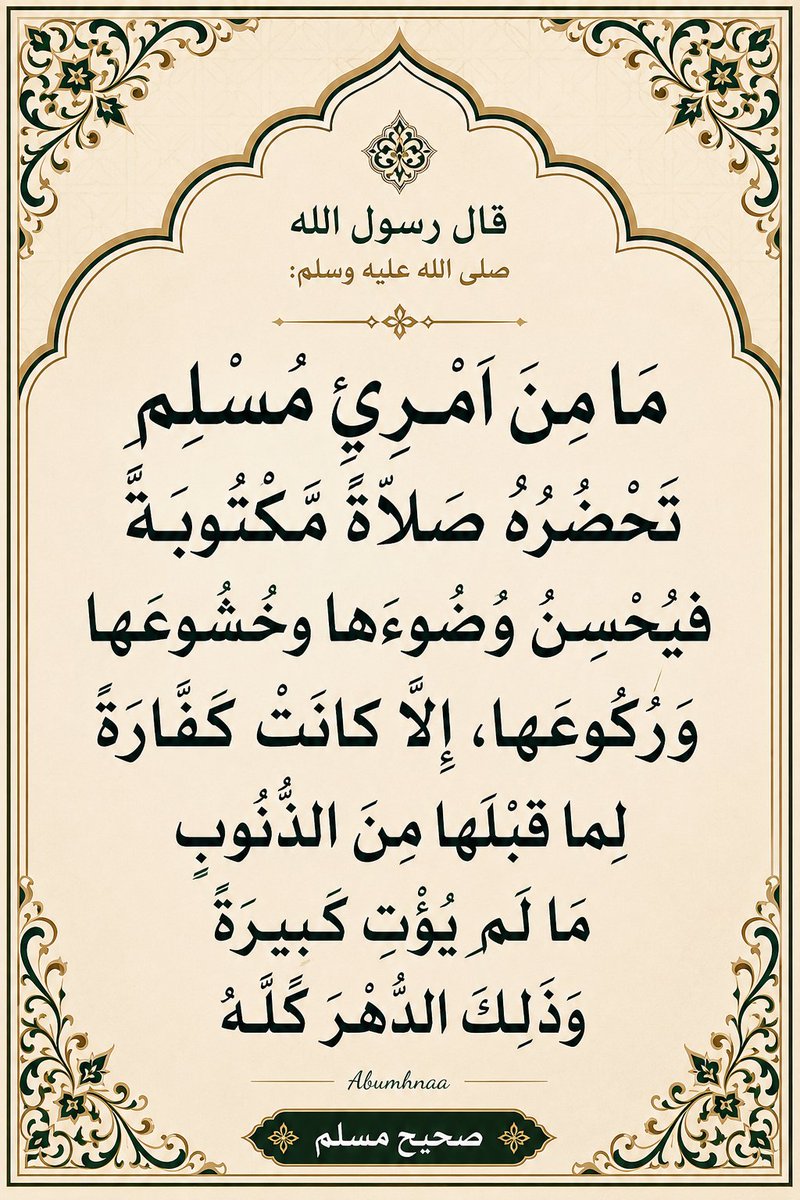 قال رسول الله
صلى الله عليه وسلم:
مَا مِنَ اَمْرِئٍ مُسْلِمٍ
تَحْضُرُهُ صَلاّةً مَّكْتُوبَةً
فيُحْسِنُ وُضُوءَها وخُشُوعَها
وَرُكُوعَها، إِلَّا كانَتْ كَفَّارَةً
لِما قبْلَها مِنَ الذُّنُوبٍ
مَا لَم يُؤْتِ كَبيرَةً
وَذَلِكَ الدُّهْرَ كًلَّهُ
Abumhnaa
صحيح مسلم